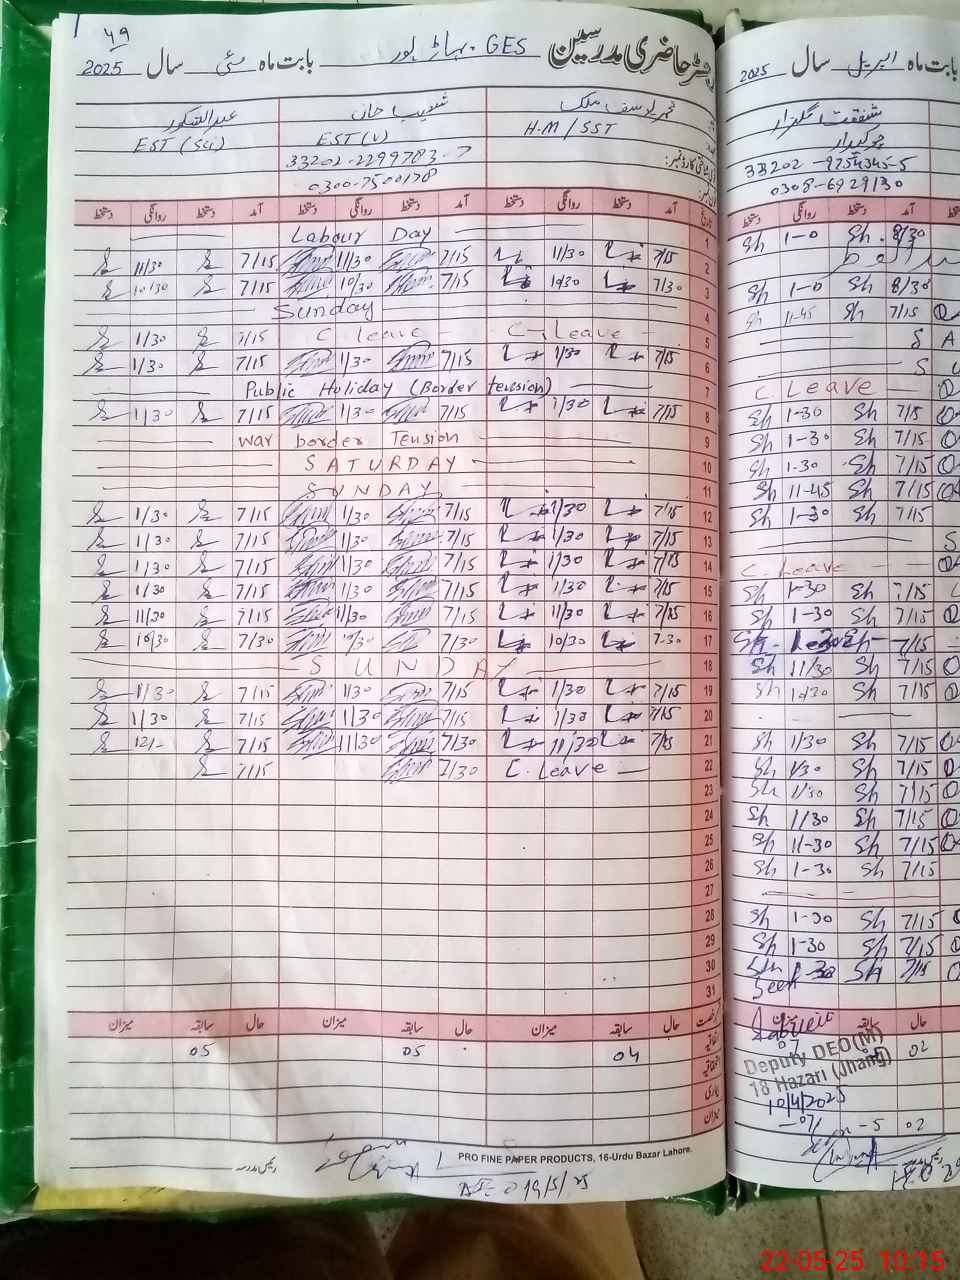 49
رجسٹر حاضری مدرسین GES پہاڑ پور بابت ماہ مئی سال 2025
محمد یوسف ملک شعیب خان عبدالشکور
H.M/SST EST(V) EST (Sci)
33202-2299783-7
0300-7500178
تاریخ آمد دستخط روانگی دستخط آمد دستخط روانگی دستخط آمد دستخط روانگی دستخط
1 Labour Day
2 7/15 11/30 7/15 11/30 7/15 11/30
3 7/30 10/30 7/15 10/30 7/15 10/30
4 Sunday
5 C. Leave C leave 7/15 1/30
6 7/15 1/30 7/15 1/30 7/15 1/30
7 Public Holiday (Border tension)
8 7/15 1/30 7/15 1/30 7/15 1/30
9 war border Tension
10 SATURDAY
11 SUNDAY
12 7/15 1/30 7/15 1/30 7/15 1/30
13 7/15 1/30 7/15 1/30 7/15 1/30
14 7/15 1/30 7/15 1/30 7/15 1/30
15 7/15 1/30 7/15 1/30 7/15 1/30
16 7/15 11/30 7/15 11/30 7/15 11/30
17 7-30 10/30 7/30 10/30 7/30 10/30
18 SUNDAY
19 7/15 1/30 7/15 1/30 7/15 1/30
20 7/15 1/30 7/15 1/30 7/15 1/30
21 7/15 11/30 7/30 11/30 7/15 12/-
22 C. Leave 7/30 7/15
23
24
25
26
27
28
29
30
31
حال سابقہ میزان حال سابقہ میزان حال سابقہ میزان
04 05 05
رئیس مدرسہ
PRO FINE PAPER PRODUCTS, 16-Urdu Bazar Lahore.
19/5/25
بابت ماہ اپریل سال 2025
شفقت گلزار
چوکیدار
33202-9254345-5
0308-6929130
دستخط روانگی دستخط آمد
Sh 1-0 Sh 8/30
Sh 1-0 Sh 8/30
Sh 11-45 Sh 7/15
S A
S U
C. Leave
Sh 1-30 Sh 7/15
Sh 1-30 Sh 7/15
Sh 1-30 Sh 7/15
Sh 11-45 Sh 7/15
Sh 1-30 Sh 7/15
S
C. Leave
Sh 1-30 Sh 7/15
Sh 1-30 Sh 7/15
7/15
Sh 11/30 Sh 7/15
Sh 10/30 Sh 7/15
Sh 1/30 Sh 7/15
Sh 1/30 Sh 7/15
Sh 11/30 Sh 7/15
Sh 11/30 Sh 7/15
Sh 11-30 Sh 7/15
Sh 1-30 Sh 7/15
Sh 1-30 Sh 7/15
Sh 1-30 Sh 7/15
Sh 1-30 Sh 7/15
Seen
میزان سابقہ حال
07 02
Deputy DEO(M)
18 Hazari (Jhang)
10/4/2025
-5 02
رئیس مدرسہ
22-05-25 10:15